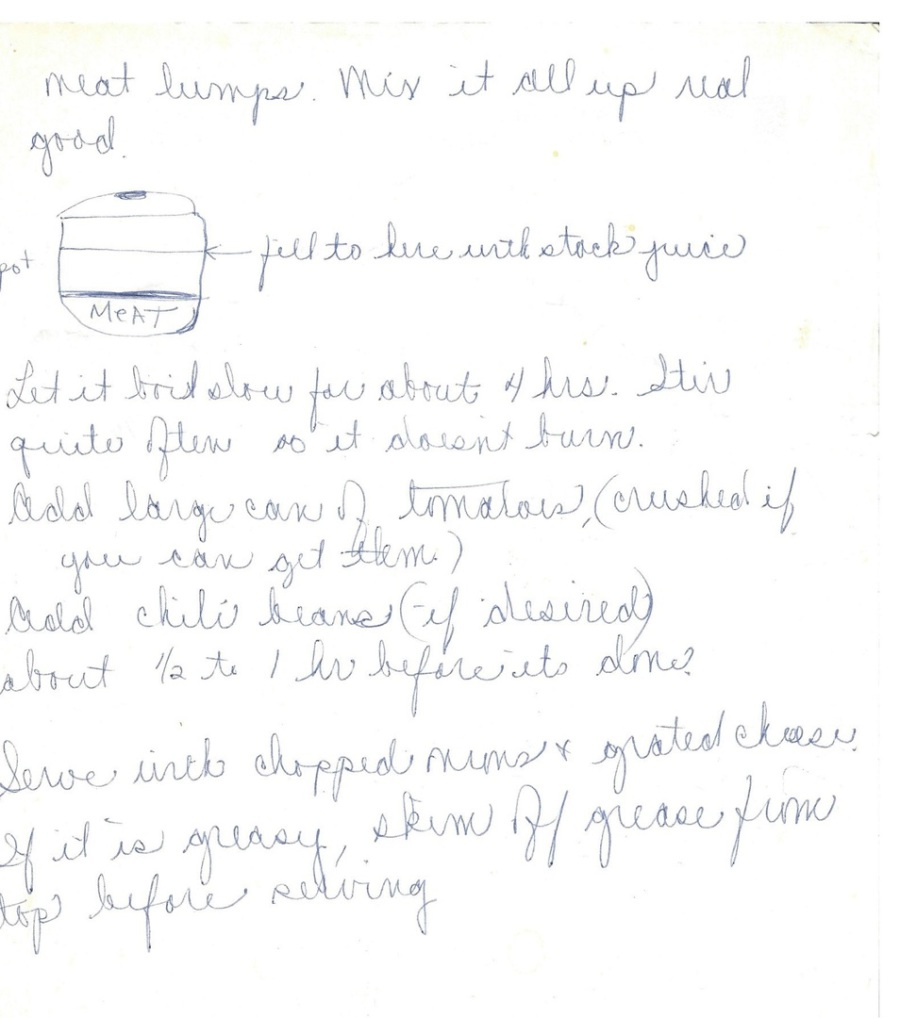 meat lumps. Mix it all up real
good.
pot
← fill to here with stock juice
MeAT
Let it boil slow for about 4 hrs. Stir
quite often so it doesnt burn.
Add large can of tomatoes, (crushed if
you can get them.)
Add chili beans (if desired)
about 1/2 to 1 hr before its done.
Serve with chopped & grated cheese.
If it is greasy, skim off grease from
top before serving